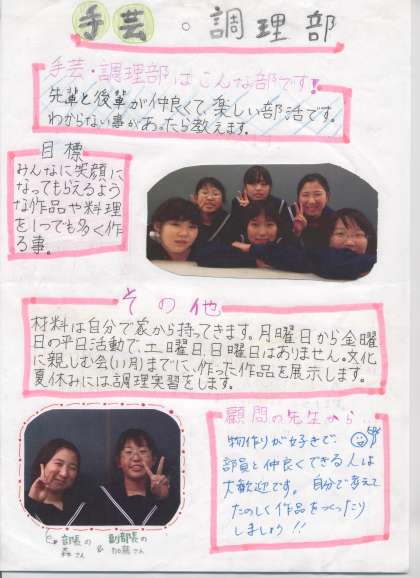 手芸・調理部
手芸・調理部はこんな部です!
先輩と後輩が仲良くて、楽しい部活です。
わからない事があったら教えます。
目標
みんなに笑顔に
なってもらえるよう
な作品や料理
を1つでも多く作
る事。
その他
材料は自分で家から持ってきます。月曜日から金曜
日の平日活動で、土曜日、日曜日はありません。文化
に親しむ会(11月)までに、作った作品を展示します。
夏休みには調理実習をします。
顧問の先生から..
物作りが好きで、
部員と仲良くできる人は
大歓迎です。自分で考えて
たのしく作品をつくったり
しましょう!!
部長の 副部長の
森さん & 加藤さん